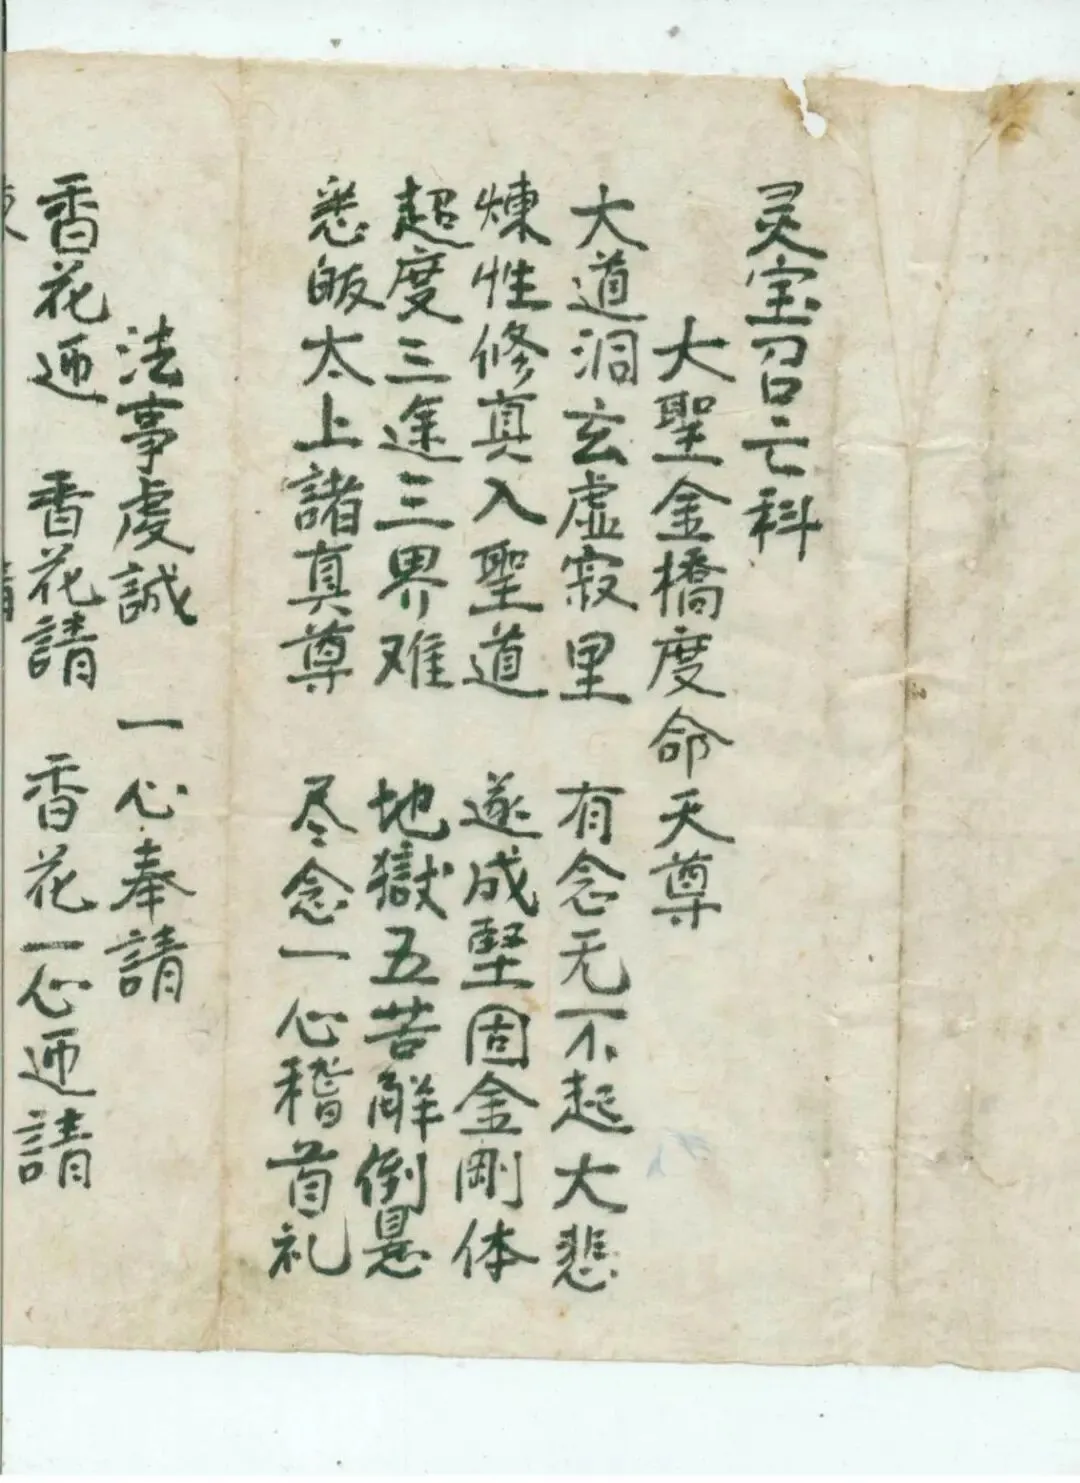 灵宝召亡科
大聖金橋度命天尊
大道洞玄虛寂里 有念无不起大悲
煉性修真入聖道 遂成堅固金剛体
超度三途三界难 地獄五苦解倒悬
悉皈太上諸真尊 尽念一心稽首礼
法事虔誠 一心奉請
香花迎 香花請 香花一心迎請